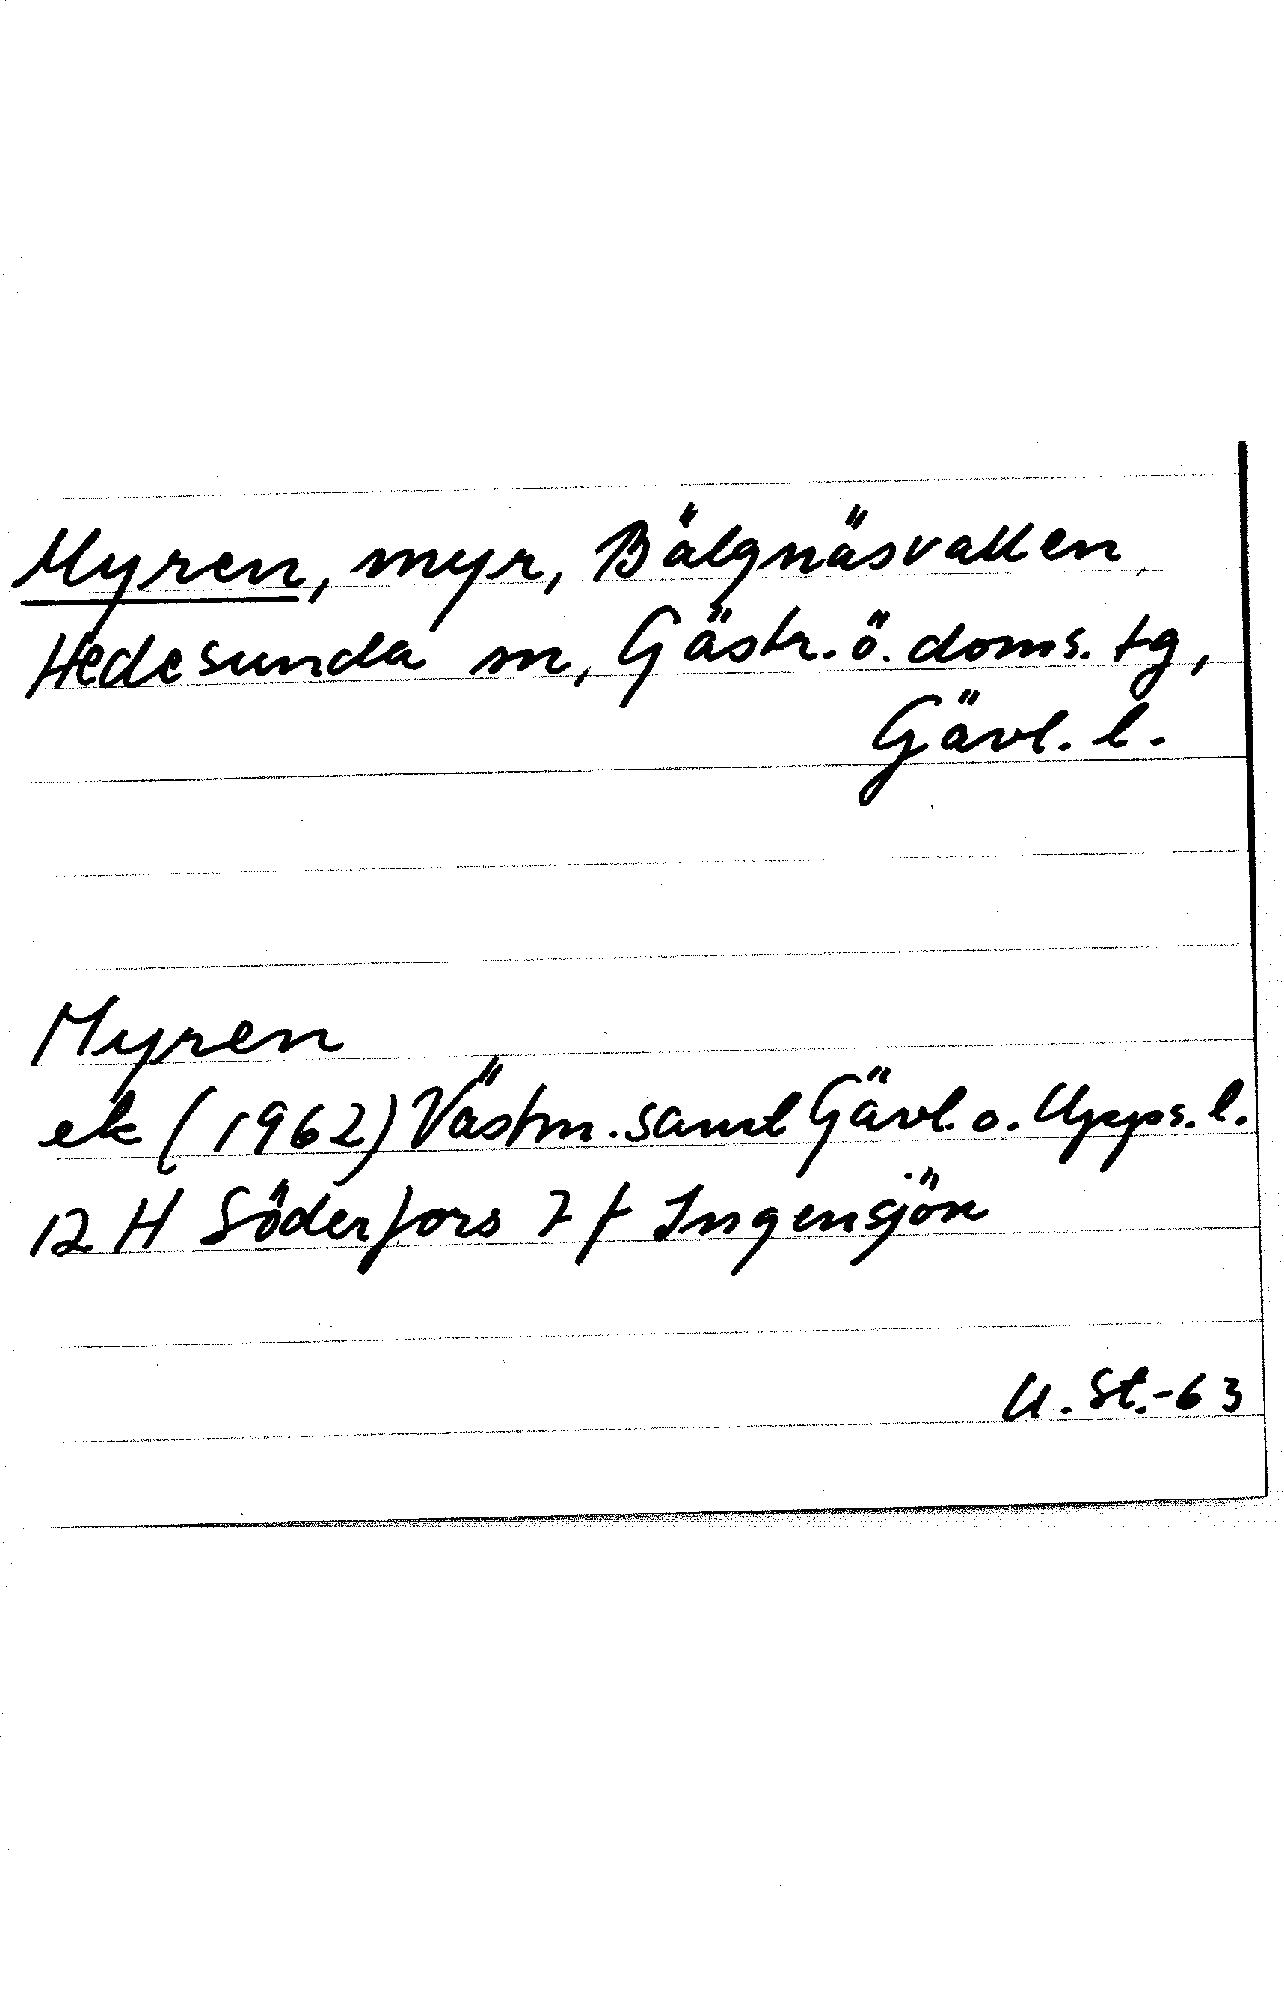 Myren, myr, Bälgnäsvallen
Hedesunda sn, Gästr. ö. doms. tg,
Gävl. l.
Myren
ek (1962) Västm. samt Gävl. o. Upps. l.
12 H Söderfors 7 f Ingensjön
U. St.-63